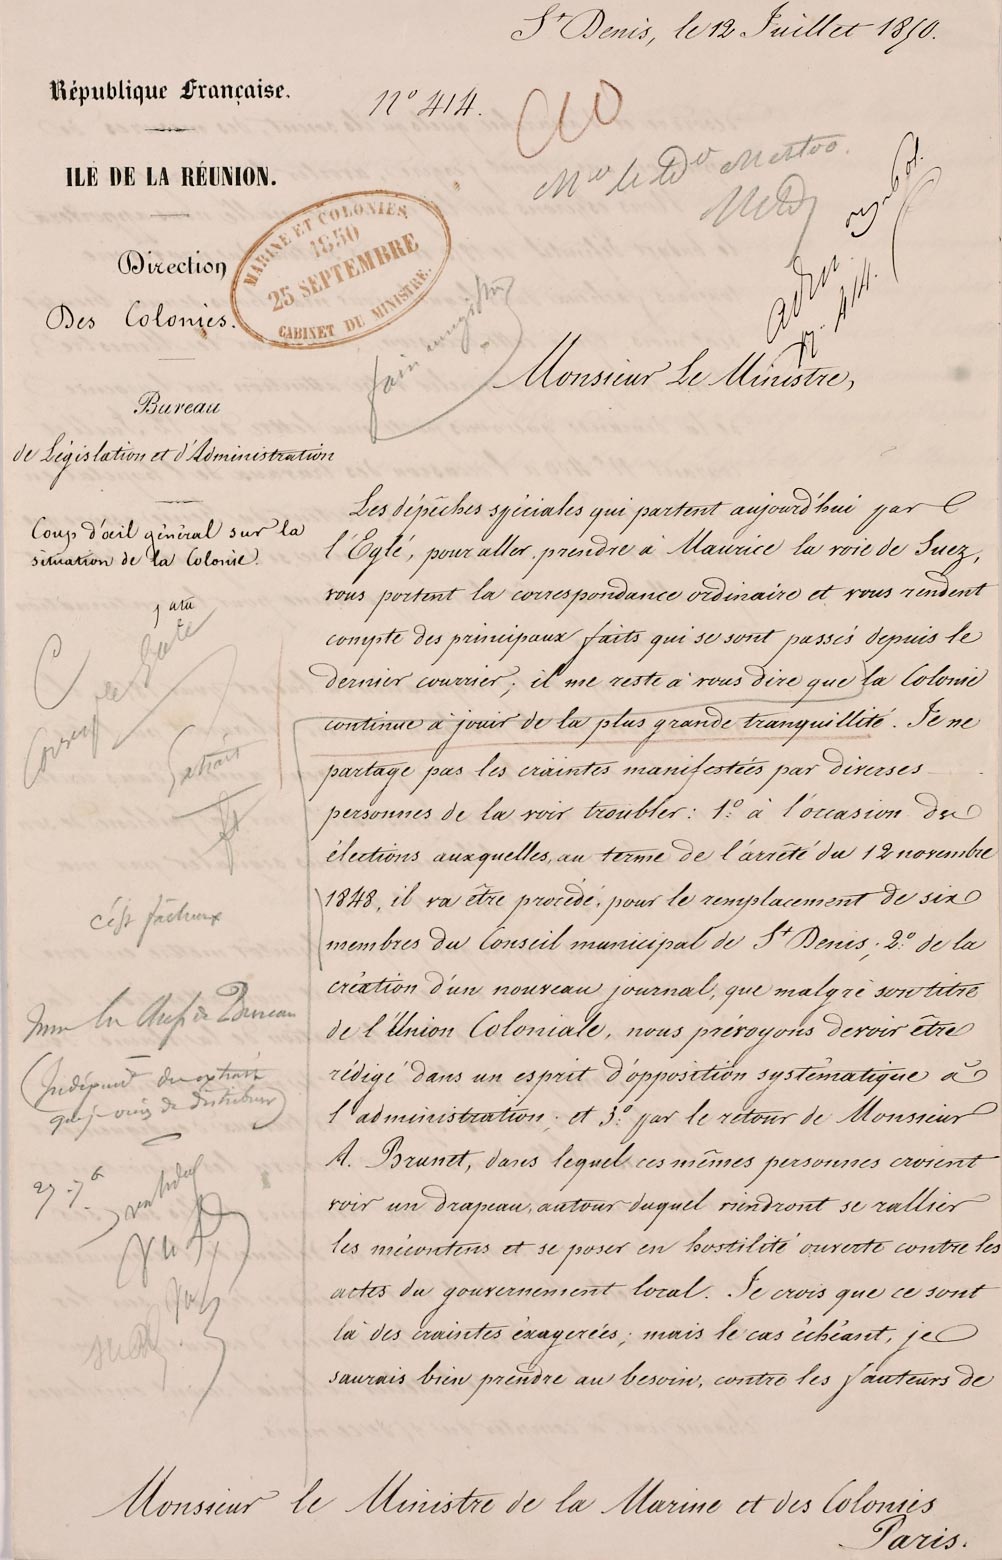 St Denis, le 12 Juillet 1850.
République Française.
N° 414.
ILE DE LA RÉUNION.
MARINE ET COLONIES
1850
25 SEPTEMBRE
CABINET DU MINISTRE.
Direction
Des Colonies.
Bureau
de Législation et d'Administration
Coup d'œil général sur la
situation de la Colonie.
n. 414.
Monsieur Le Ministre,
Les dépêches spéciales qui partent aujourd'hui par
l'Eglé, pour aller prendre à Maurice la voie de Suez,
vous portent la correspondance ordinaire et vous rendent
compte des principaux faits qui se sont passés depuis le
dernier courrier; il me reste à vous dire que la Colonie
continue à jouir de la plus grande tranquillité. Je ne
partage pas les craintes manifestées par diverses
personnes de la voir troubler: 1.° à l'occasion des
élections auxquelles, au terme de l'arrêté du 12 novembre
1848, il va être procédé, pour le remplacement de six
membres du Conseil municipal de St Denis; 2.° de la
création d'un nouveau journal, que malgré son titre
de l'Union Coloniale, nous prévoyons devoir être
rédigé dans un esprit d'opposition systématique à
l'administration; et 3.° par le retour de Monsieur
A. Brunet, dans lequel ces mêmes personnes croient
voir un drapeau, autour duquel viendront se rallier
les mécontens et se poser en hostilité ouverte contre les
actes du gouvernement local. Je crois que ce sont
là des craintes éxagerées; mais le cas échéant, je
saurais bien prendre au besoin, contre les fauteurs de
Extrait
c'est fâcheux
Bureau
Monsieur le Ministre de la Marine et des Colonies
Paris.